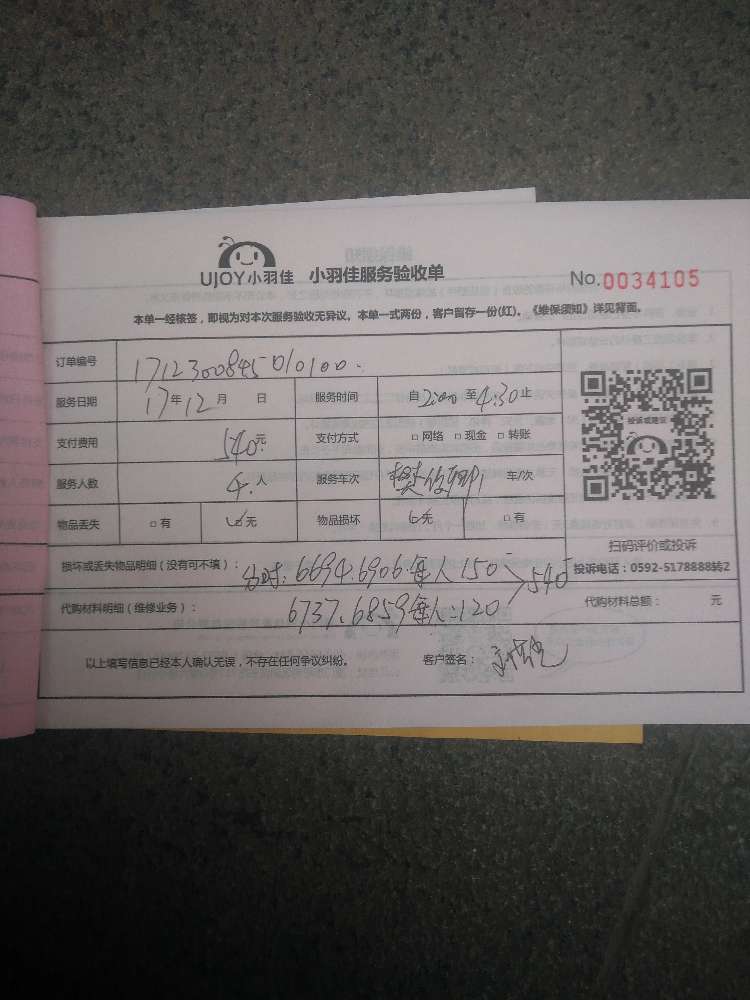 UJOY小羽佳 小羽佳服务验收单 No.0034105
本单一经核签，即视为对本次服务验收无异议。本单一式两份，客户留存一份(红)。《维保须知》详见背面。
订单编号 1712300845010100
服务日期 17年12月 日 服务时间 自2:00至4:30止
支付费用 540元 支付方式 □网络 □现金 □转账
服务人数 4.人 服务车次 车/次
物品丢失 □有 ☑无 物品损坏 ☑无 □有
投诉或建议
扫码评价或投诉
投诉电话：0592-5178888转2
损坏或丢失物品明细（没有可不填）： 6694.6906.每人150 540
代购材料明细（维修业务）： 6737.6859每人:120 代购材料总额： 元
以上填写信息已经本人确认无误，不存在任何争议纠纷。 客户签名：